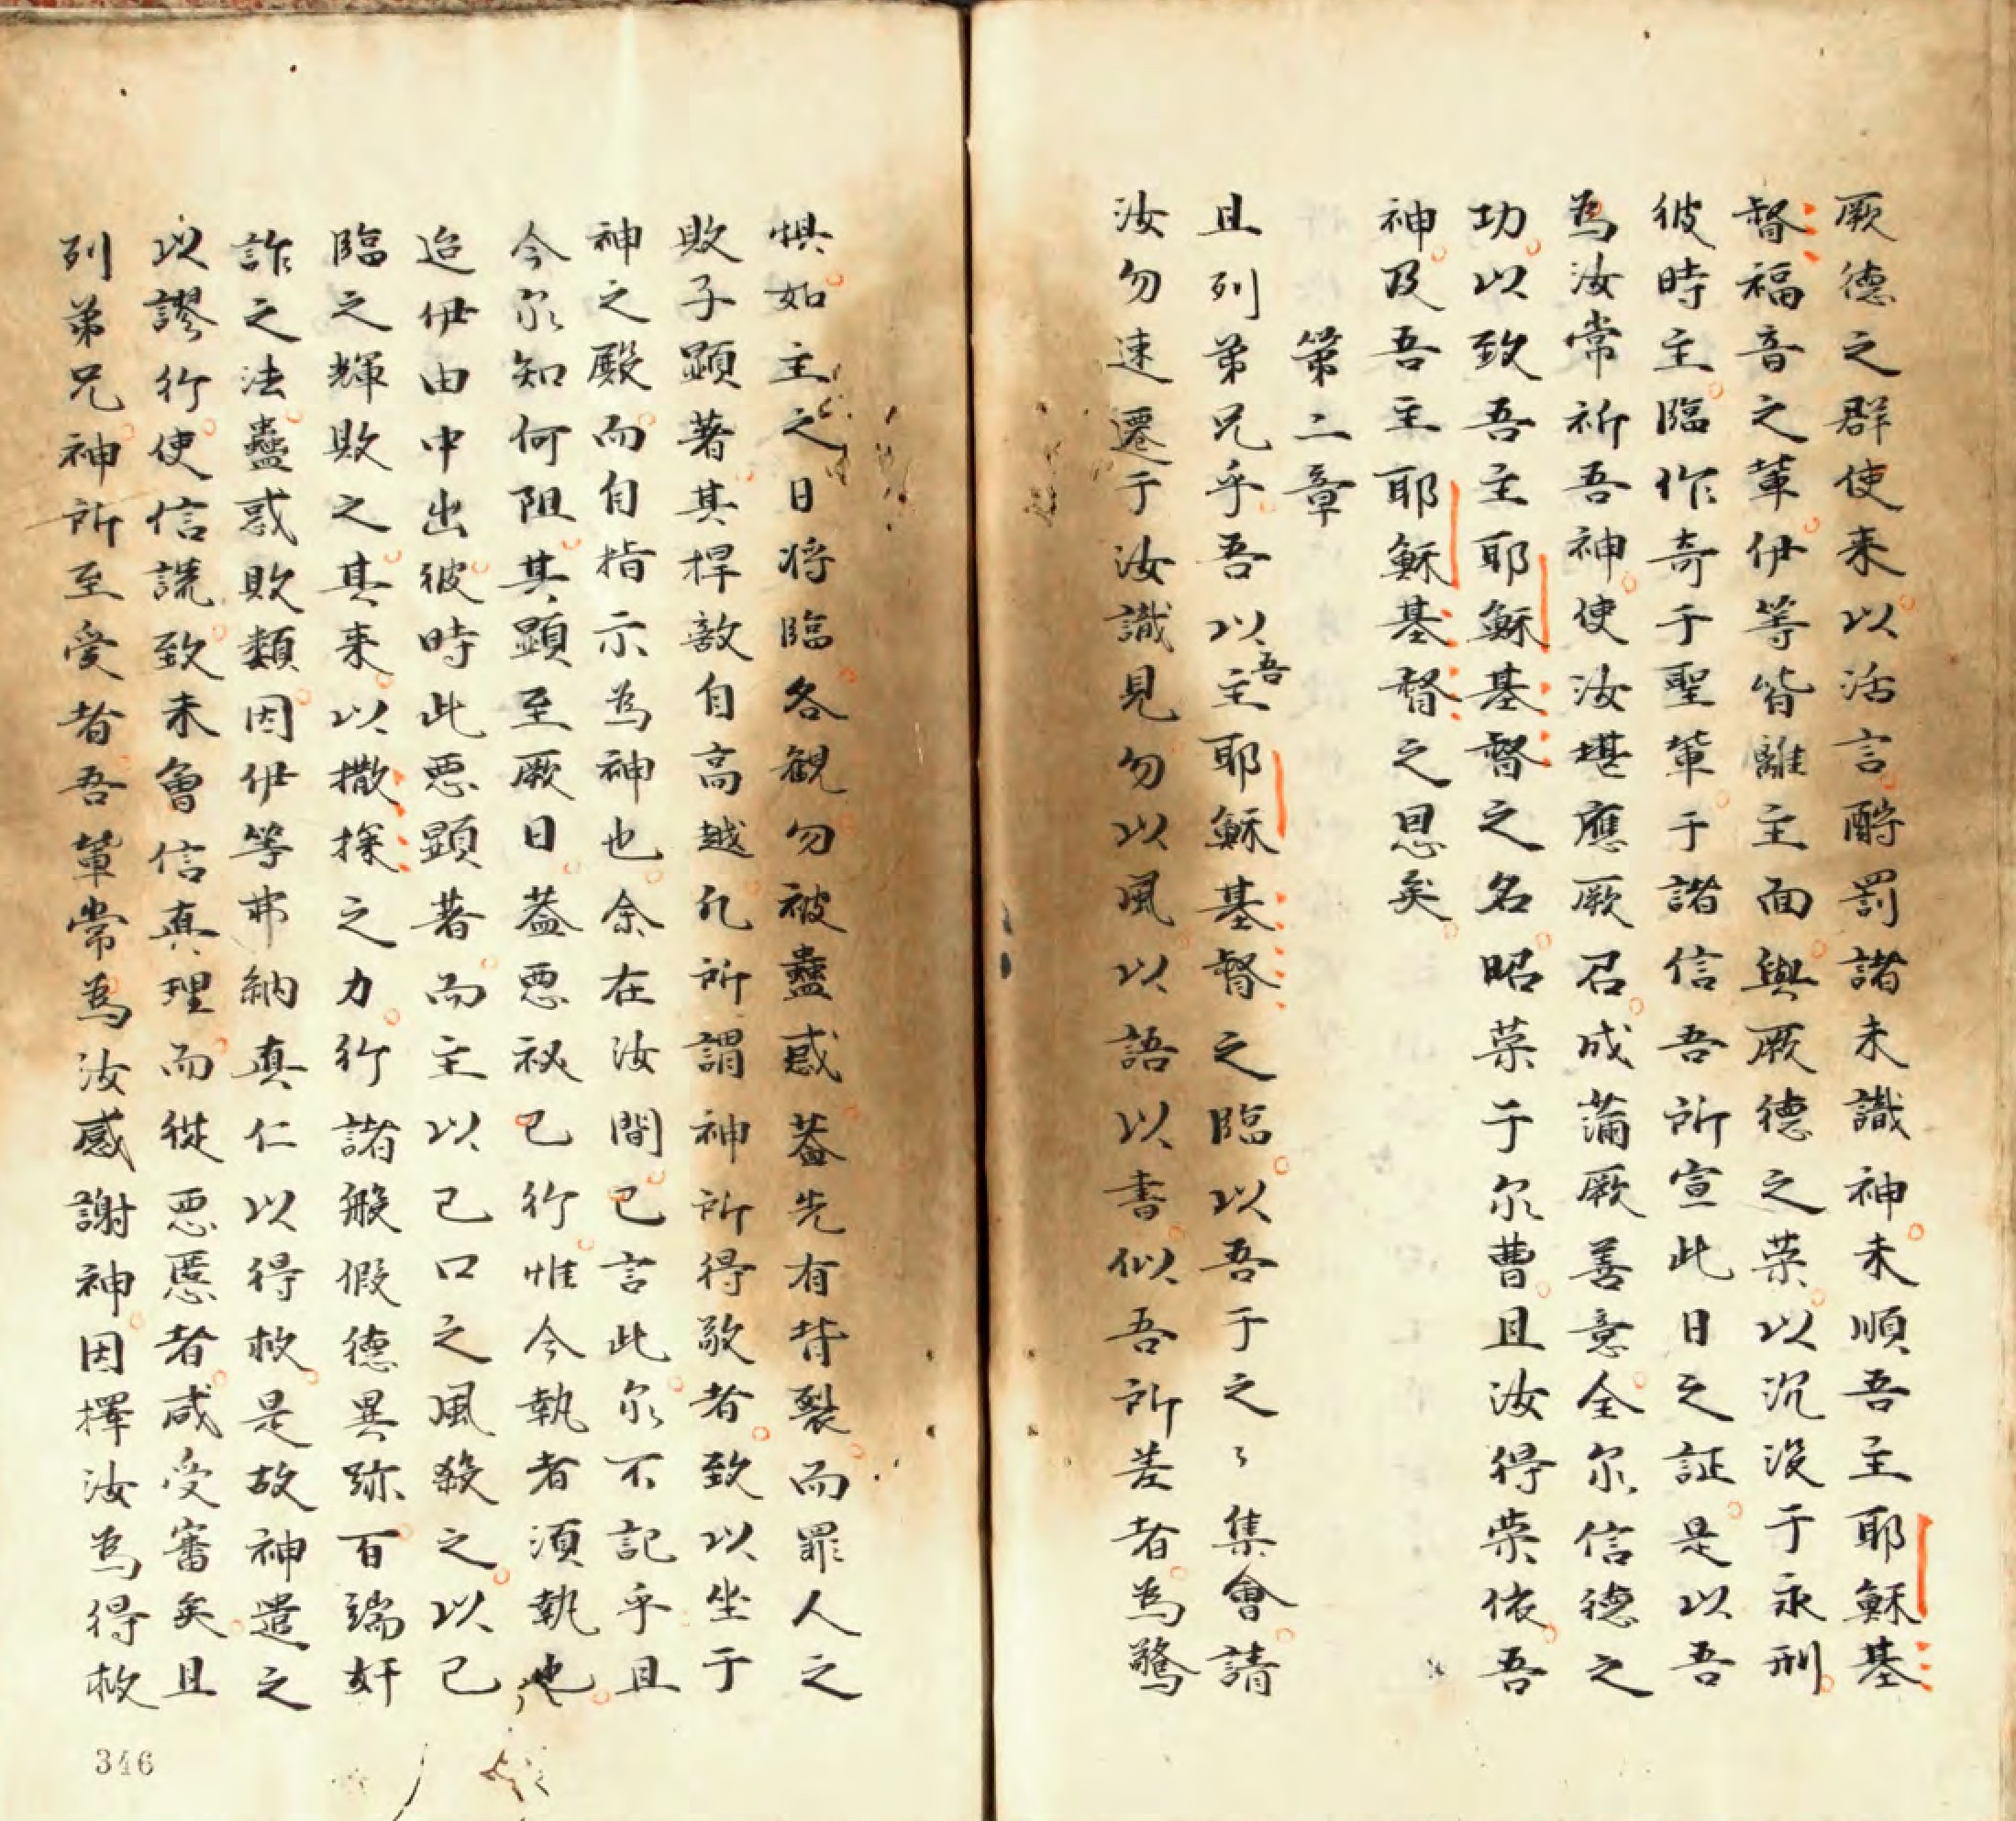 厥德之群使来以活言酹罰諸未識神未順吾主耶穌基
督福音之軰伊等皆離主面與厥德之荣以沉没于永刑
彼時主臨作奇于聖軰于諸信吾所宣此日之証是以吾
為汝常祈吾神使汝堪應厥召成蒲厥善意全尔信德之
功以致吾主耶穌基督之名昭荣于尔曹且汝得荣依吾
神及吾主耶穌基督之恩矣
第二章
且列弟兄乎吾以吾主耶穌基督之臨以吾于之〻集會請
汝勿速遷于汝識見勿以風以語以書似吾所差者為驚
惧如主之日将臨各觀勿被蠱惑蓋先有背裂而罪人之
敗子顕著其捍敵自高越凢所謂神所得敬者致以坐于
神之殿而自指示為神也余在汝間已言此尔不記乎且
今尔知何阻其顕至厥日葢悪祕已行惟今執者湏執也
迨伊由中出彼時此悪顕著而主以己口之風殺之以己
臨之輝敗之其来以撒探之力行諸般假德異跡百端奸
詐之法蠱惑敗類因伊等弗納真仁以得救是故神遣之
以謬行使信謊致未會信真理而從悪慝者咸受審矣且
列弟兄神所至愛者吾軰常為汝感謝神因擇汝為得救
346